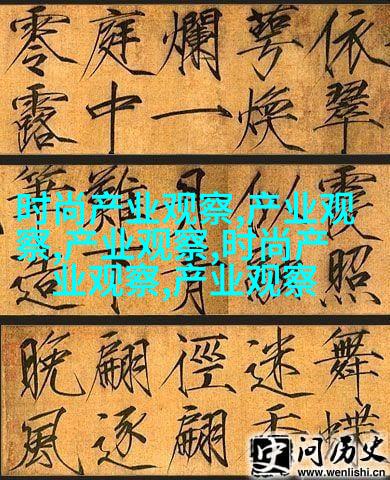 依翠
萼煥
爛一
庭中
零露
霞照
似
難
筆造
舞蝶
迷香
徑翩
翩逐
晚風
时尚产业观察,产业观
察,产业观察,时尚产
业观察,产业观察
问历史
www.wenlishi.cn